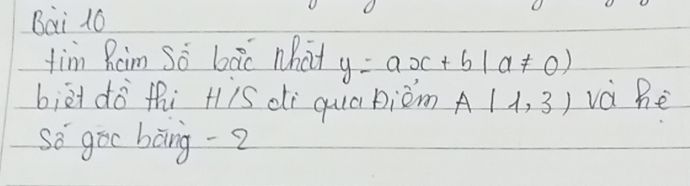 Bài 10
tìm hàm số bậc nhất y = ax + b ( a ≠ 0 )
biết đồ thi H/S đi qua điểm A ( 1, 3 ) và hê
số góc bằng - 2